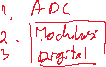 1. ADC
2. Modulasi
3. Digital